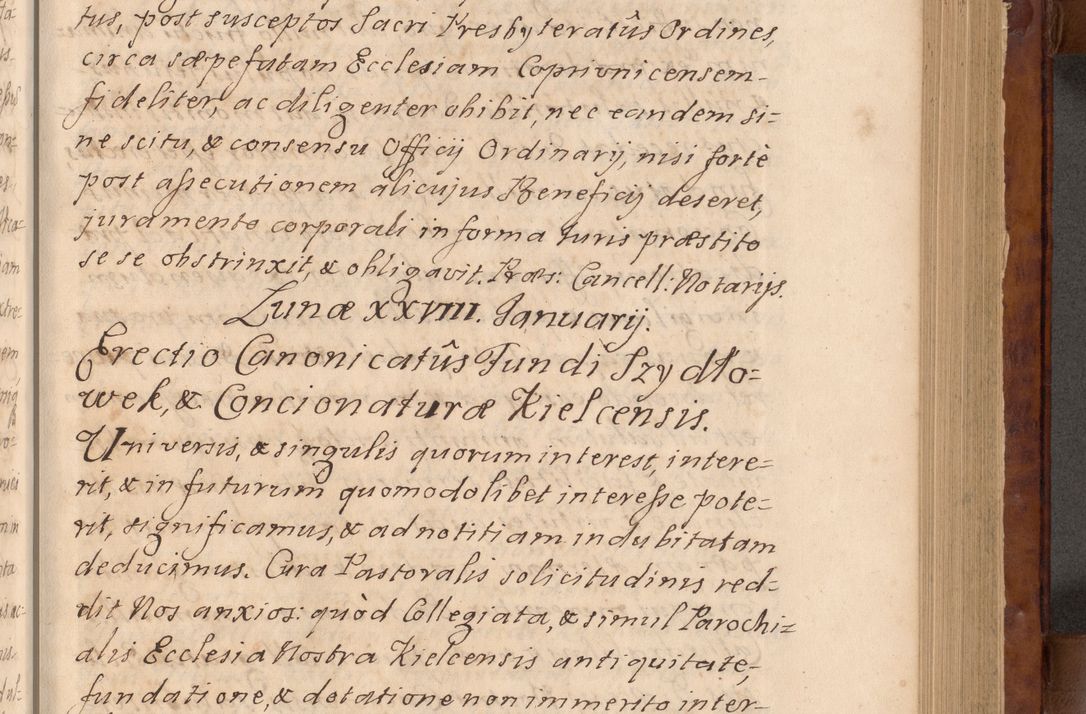 tus, post susceptos Sacri Presbyteratûs Ordines,
circa sæpefatam Ecclesiam Coprivnicensem
fideliter, ac diligenter obibit, nec eandem si=
ne scitu, & consensu Officij Ordinarij, nisi fortè
post aſsecutionem alicujus Beneficij deseret,
juramento corporali in forma Iuris præstito
se se obstrinxit, & obligavit. Præs: Cancell: Notarijs.
Lunæ XXVIIII. Ianuarij.
Erectio Canonicatûs Fundi Szydło=
wek, & Concionaturæ Kielcensis.
Universis, & singulis quorum interest, intere=
rit, & in futurum quomodolibet intereſse pote=
rit, significamus, & ad notitiam indubitatam
deducimus. Cura Pastoralis solicitudinis red=
dit Nos anxios: quòd Collegiata, & simul Parochi=
alis Ecclesia Nostra Kielcensis antiquitate,
fundatione, & dotatione non immerito inter=